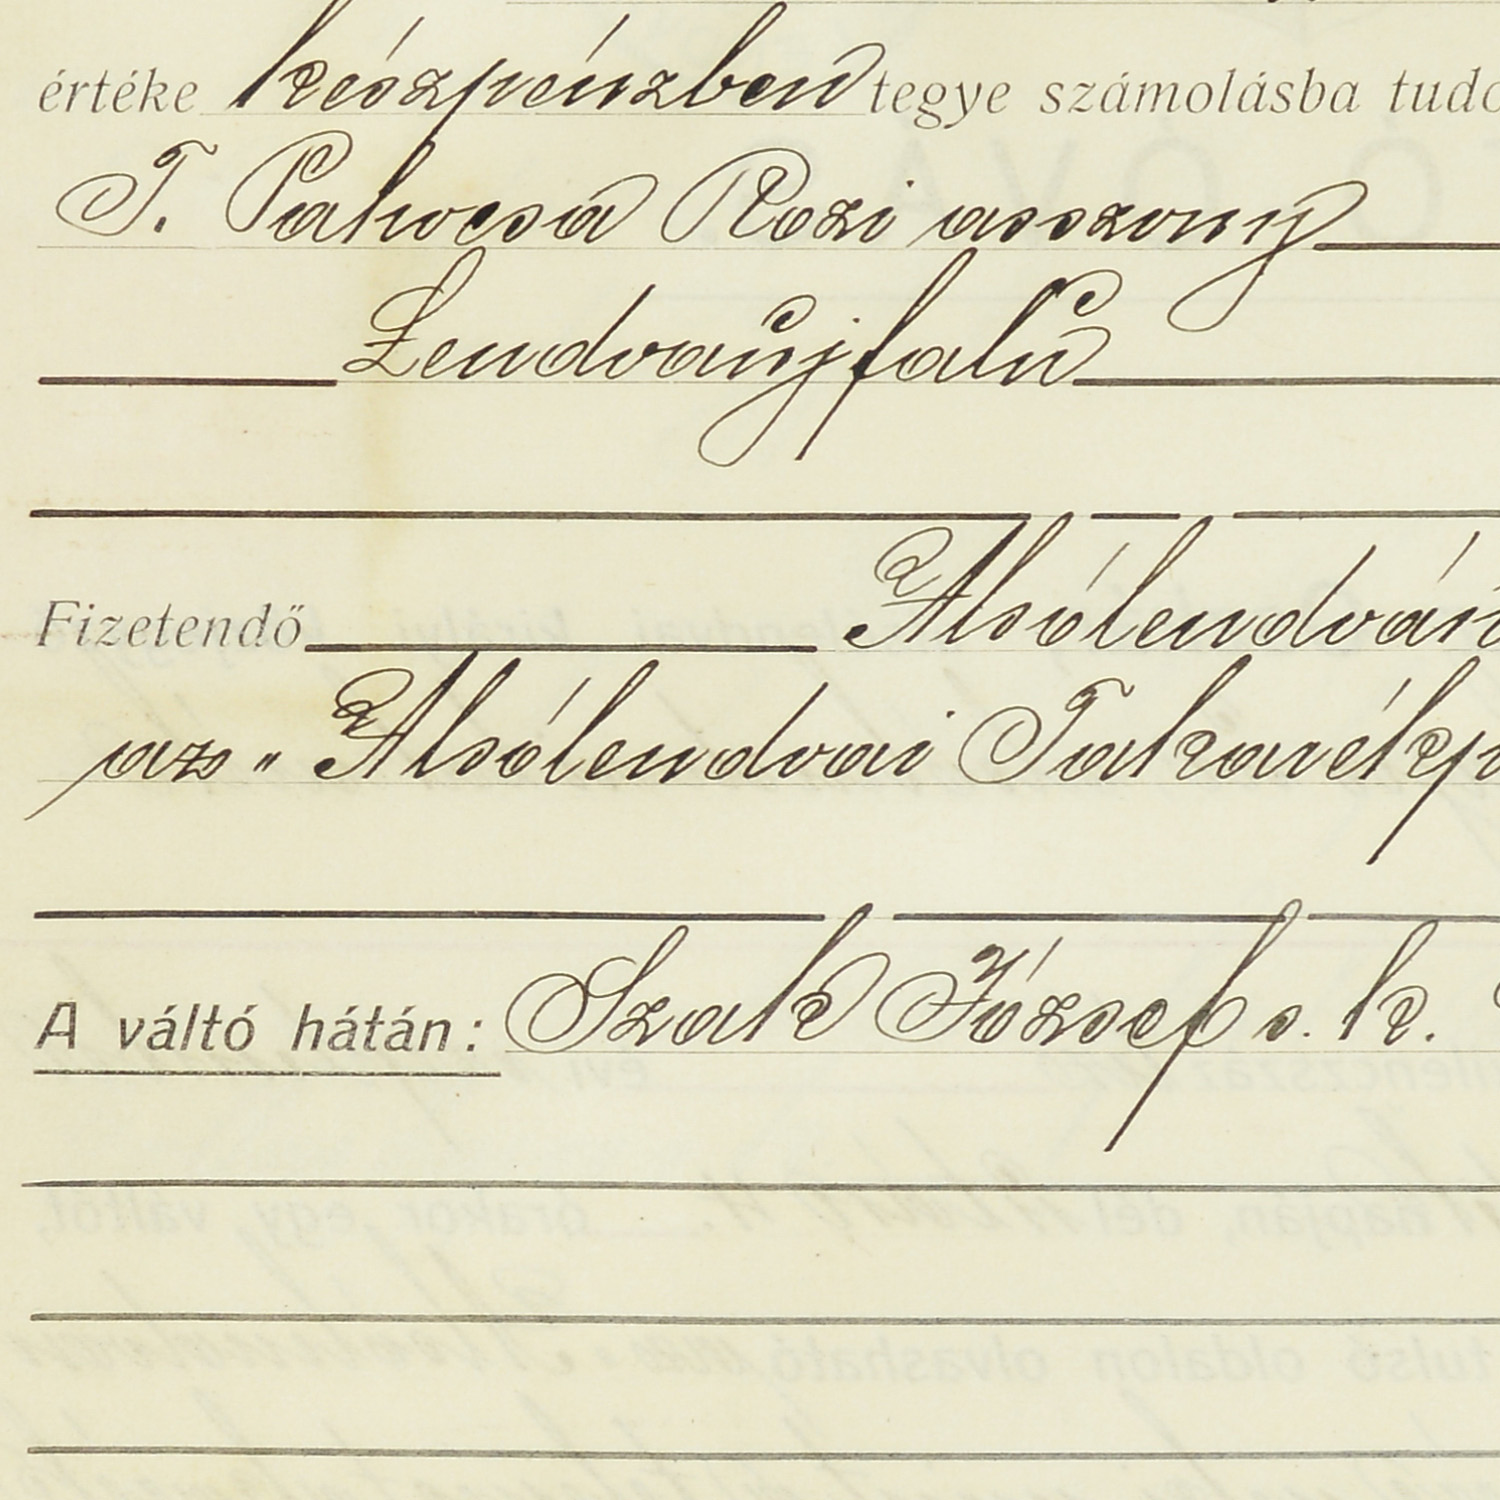 értéke készpénzben tegye számolásba tudo
T. Pahocsa Rozi asszony
Lendvaujfalu
Fizetendő Alsólendván
az „Alsólendvai Takarékp
A váltó hátán: Szak József s. k.